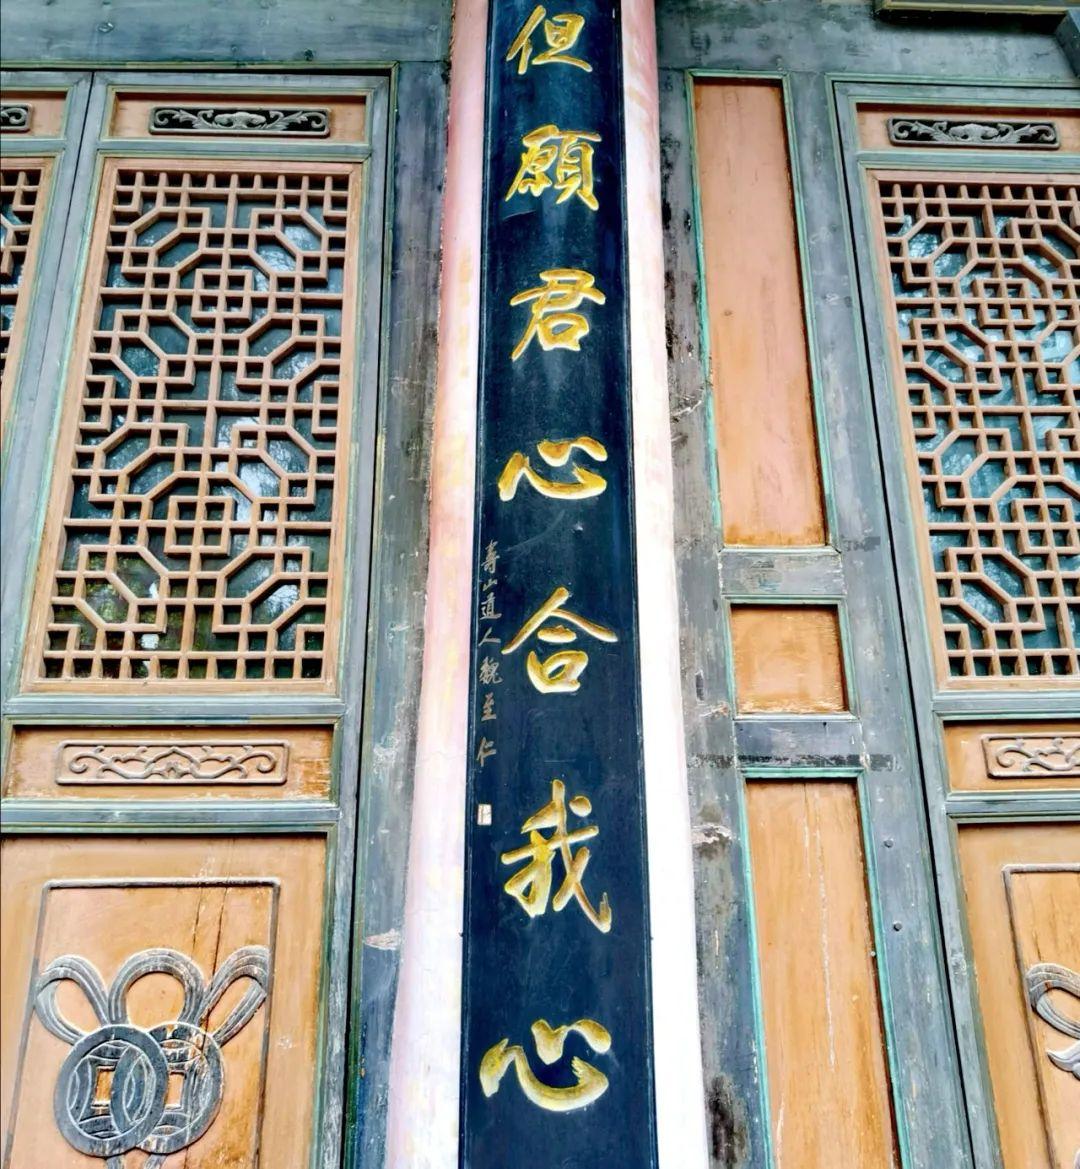 但願君心合我心
壽山道人魏至仁